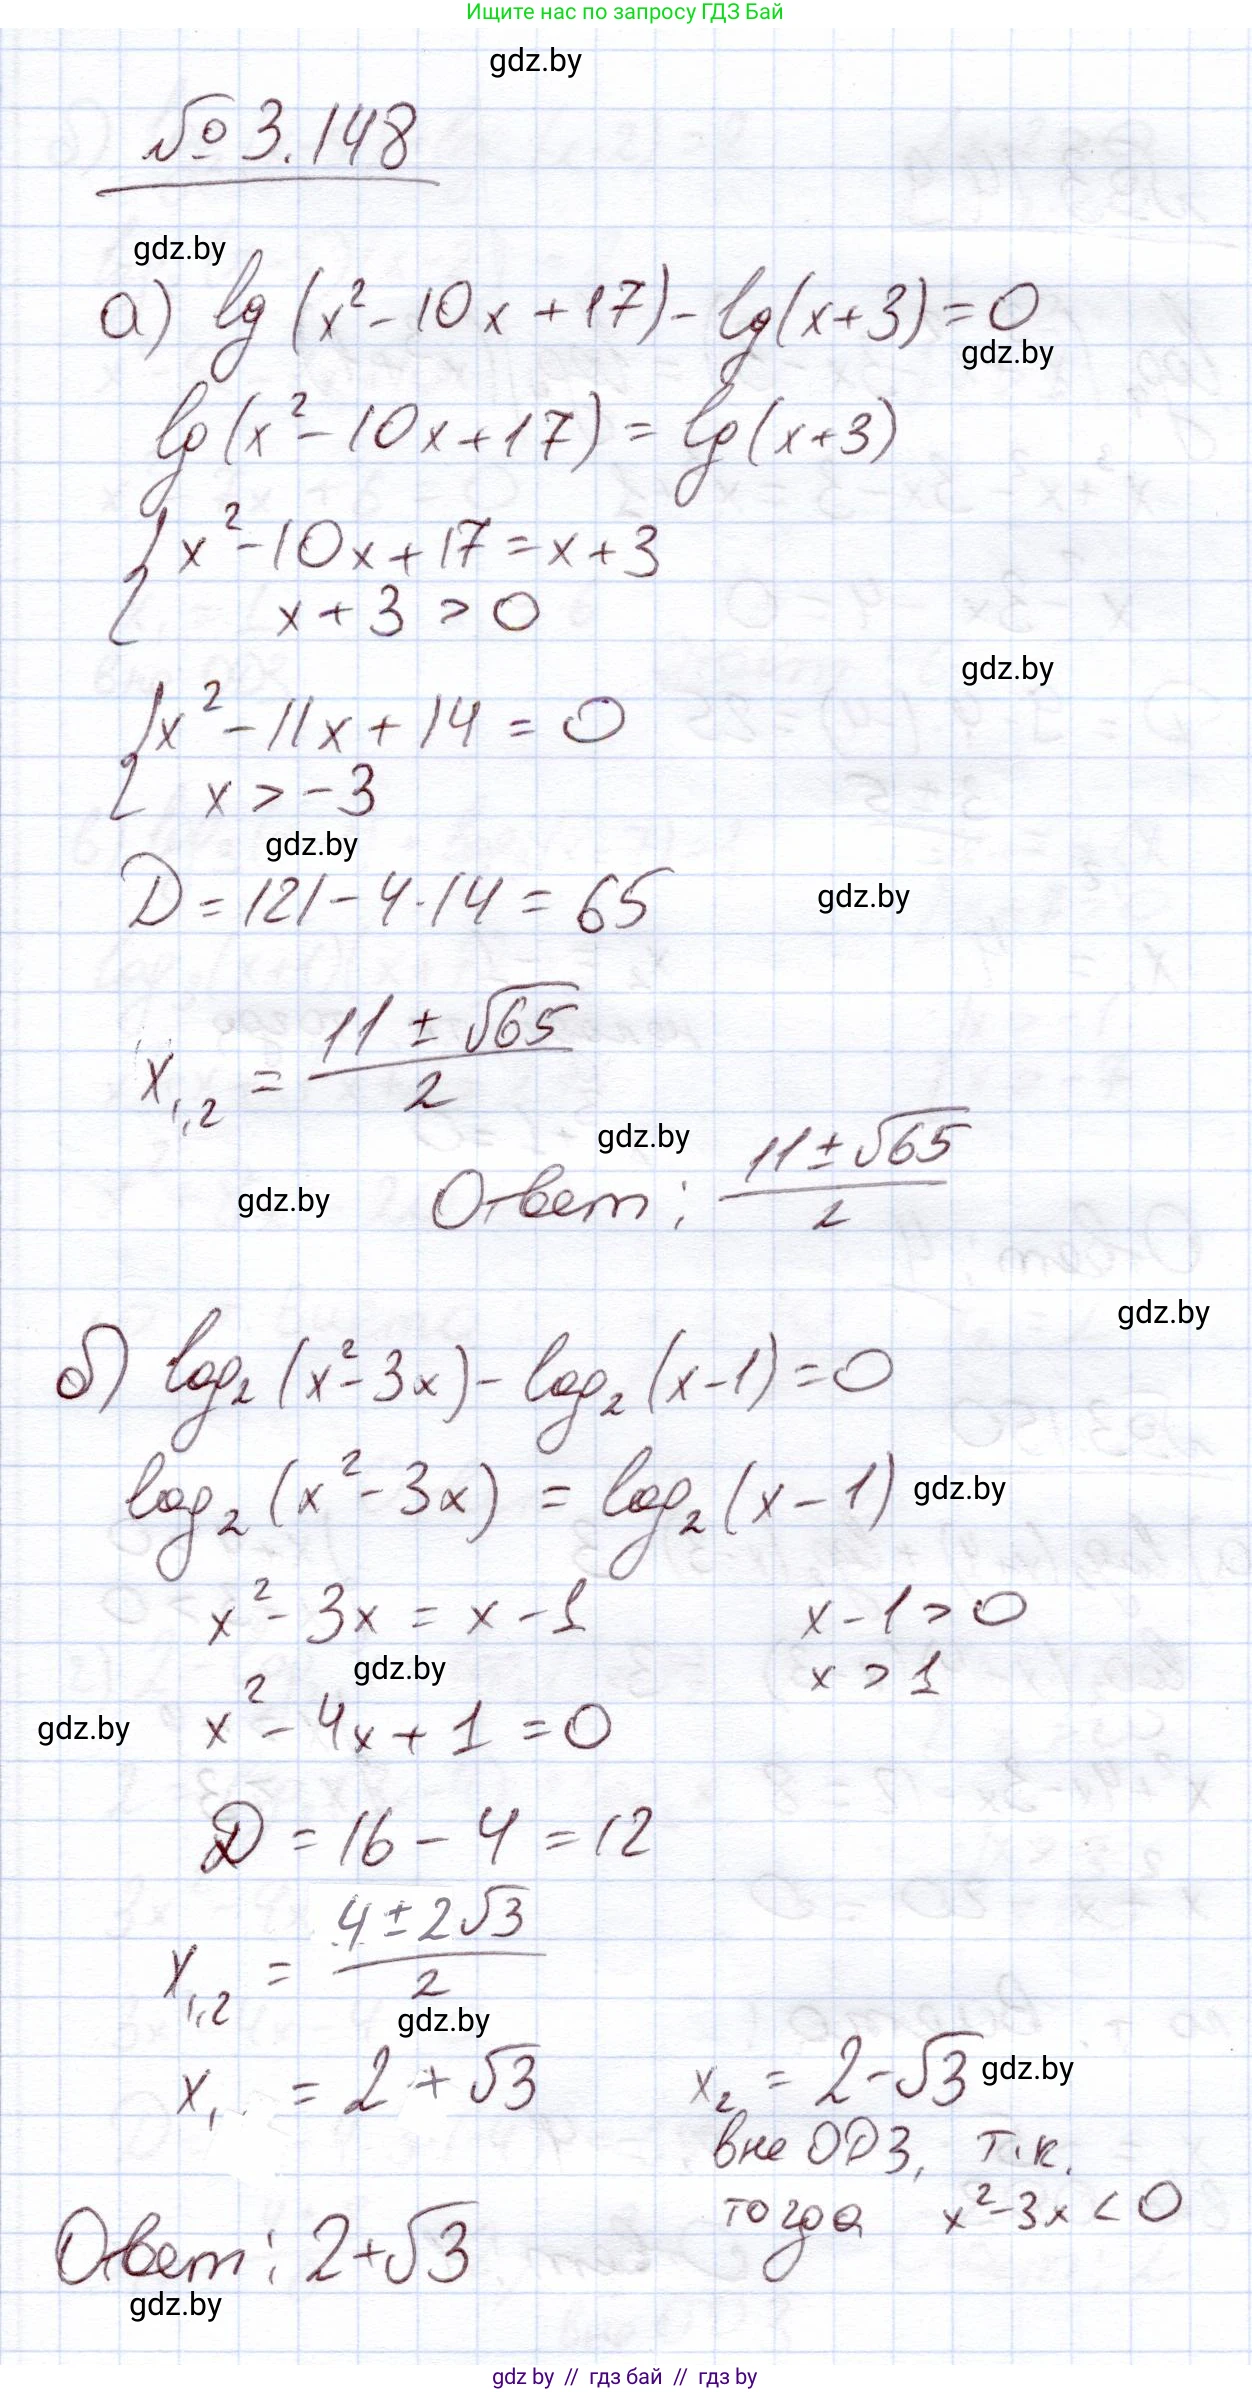 Ищите нас по запросу ГДЗ Бай
gdz.by
№ 3.148
gdz.by
а) lg (x² - 10x + 17) - lg(x+3) = 0
gdz.by
lg(x² - 10x + 17) = lg(x+3)
{ x² - 10x + 17 = x + 3
x + 3 > 0
gdz.by
{ x² - 11x + 14 = 0
x > -3
gdz.by
D = 121 - 4·14 = 65
gdz.by
x₁,₂ = (11 ± √65) / 2
gdz.by
gdz.by
Ответ: (11 ± √65) / 2
gdz.by
б) log₂ (x² - 3x) - log₂ (x-1) = 0
log₂ (x² - 3x) = log₂ (x - 1)
gdz.by
x² - 3x = x - 1   x - 1 > 0
gdz.by   x > 1
gdz.by
x² - 4x + 1 = 0
D = 16 - 4 = 12
x₁,₂ = (4 ± 2√3) / 2
gdz.by
x₁ = 2 + √3   x₂ = 2 - √3
gdz.by
вне ОДЗ, т.к.
тогда x² - 3x < 0
Ответ: 2+√3
gdz.by
gdz by // гдз бай // гдз by